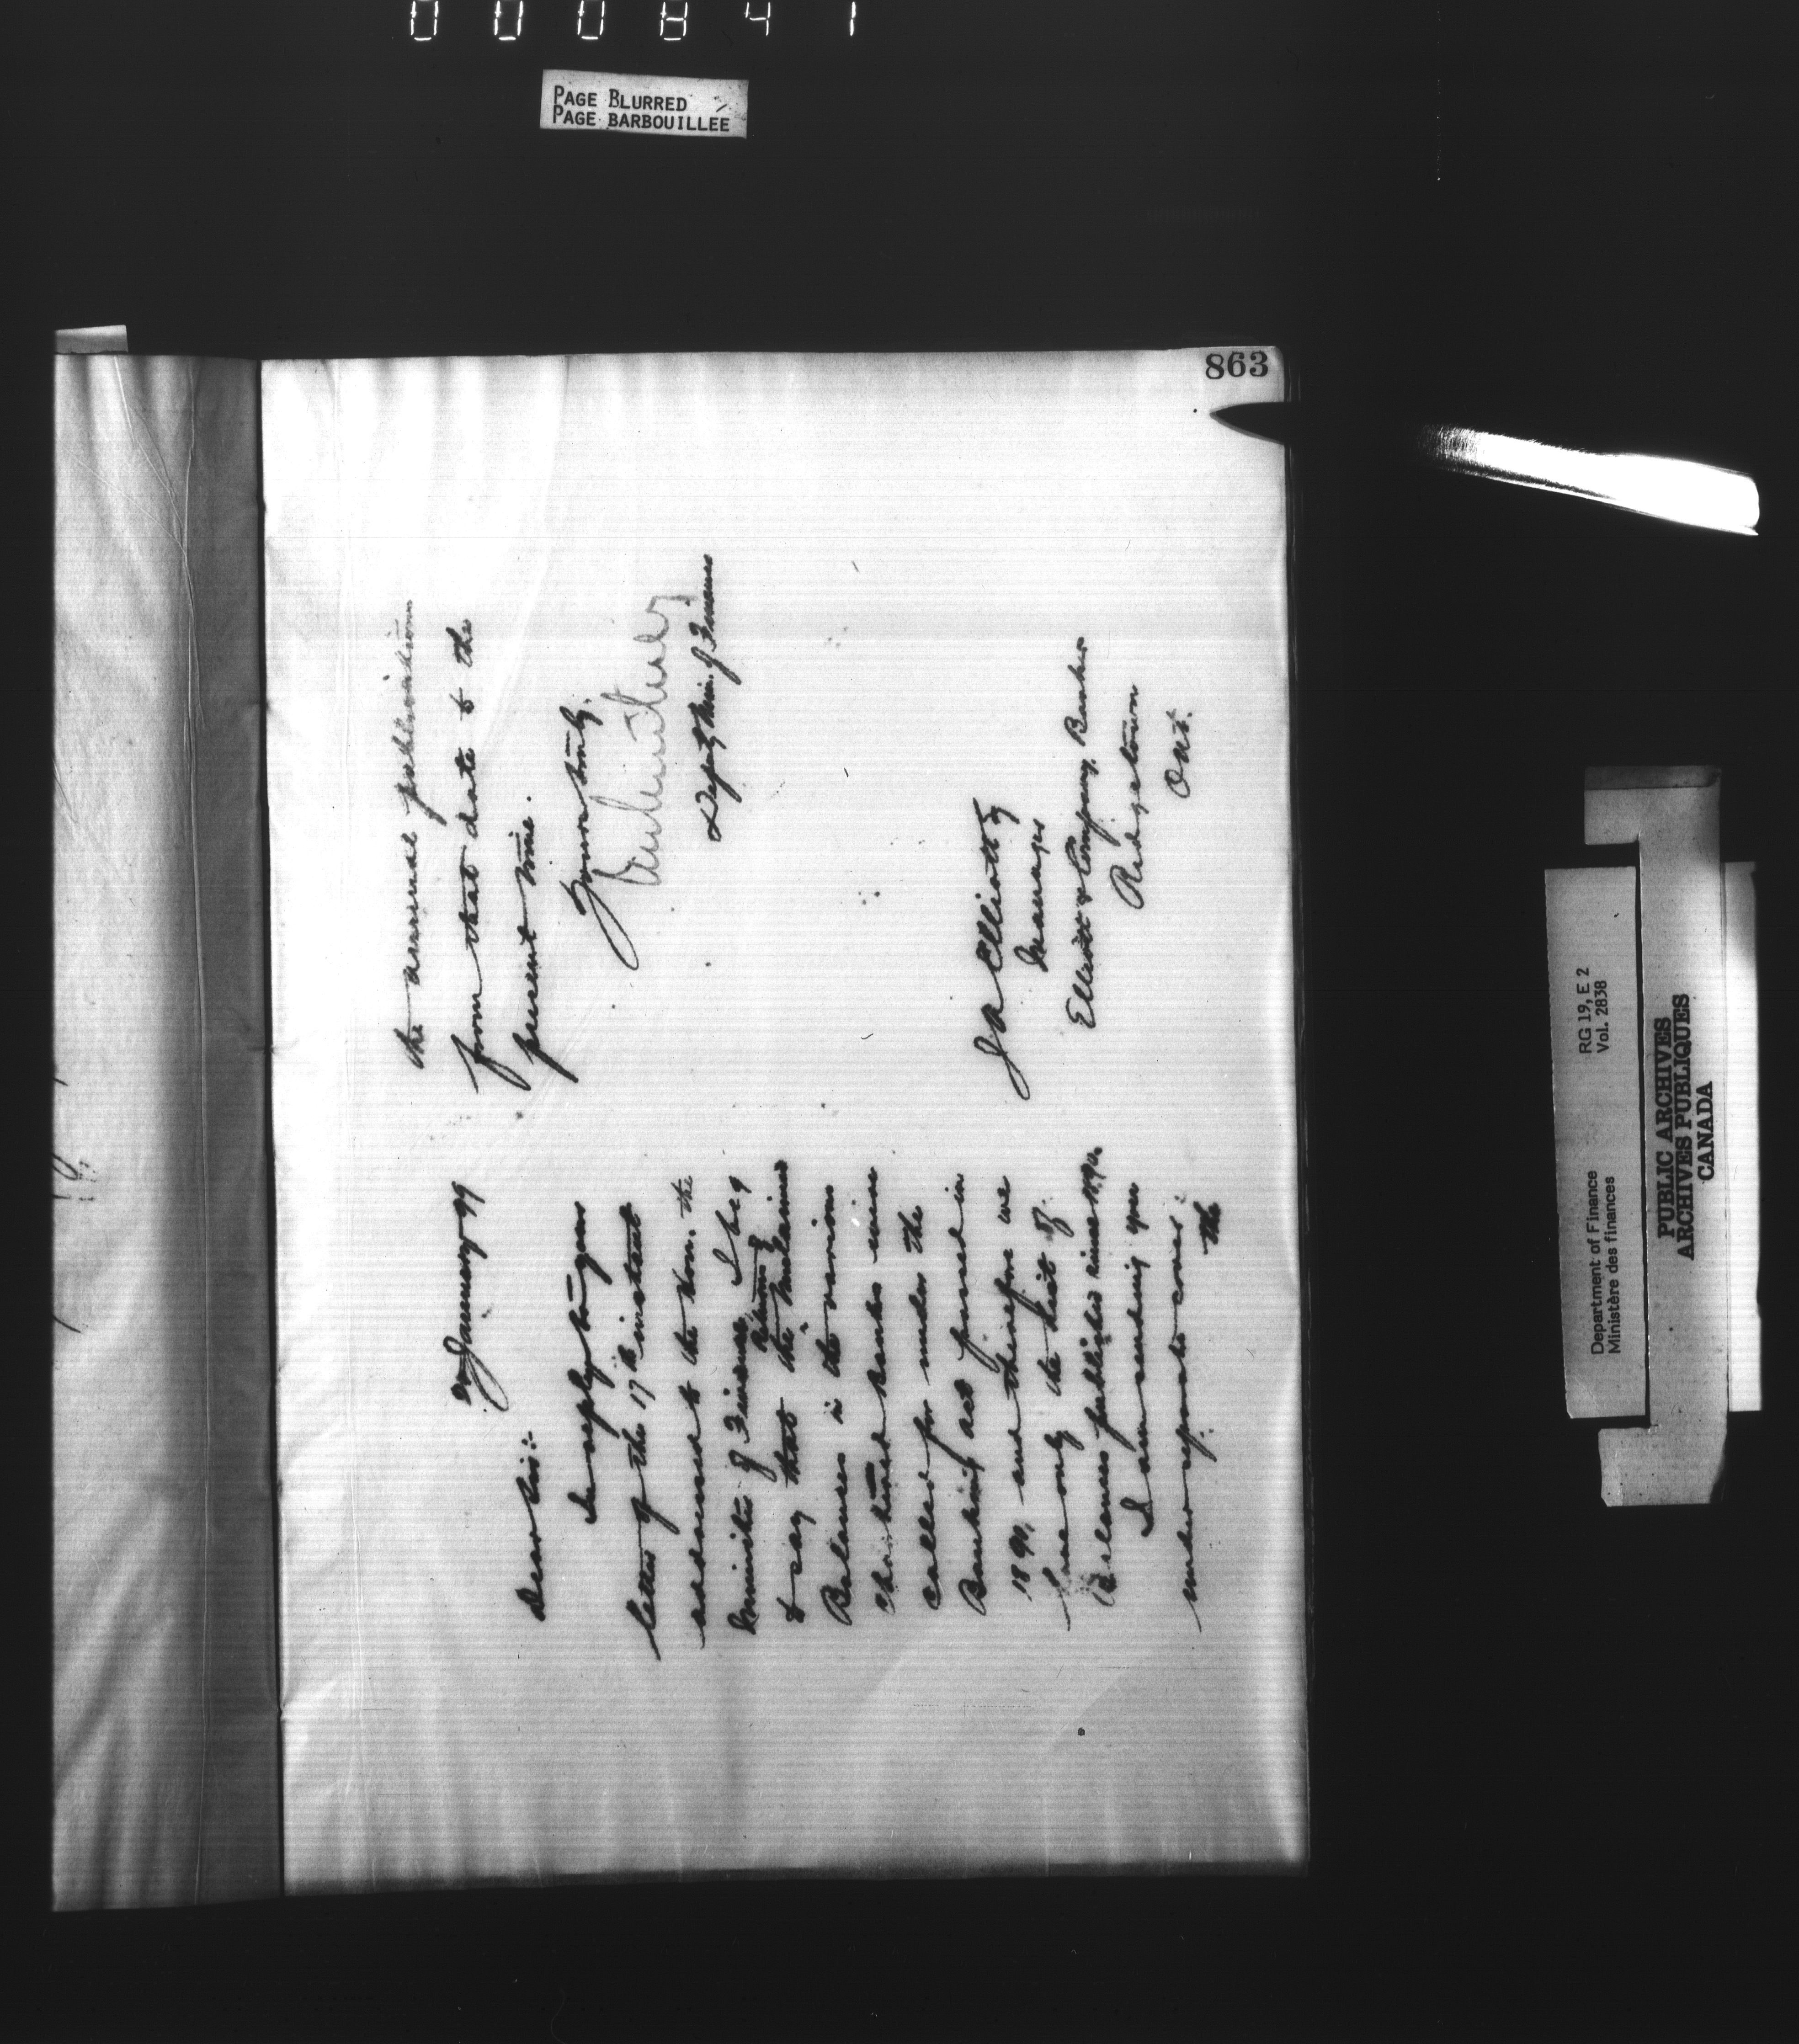 000841
PAGE BLURRED
PAGE BARBOUILLÉE
863
20 January 99
Dear Sir:
In reply to your
letter of the 17th instant
addressed to the Hon. the
Minister of Finance I beg
to say that the Returns of Unclaimed
Balances in the various
Chartered banks were
called for under the
Banking act passed in
1890, and therefore we
have only the list of
Balances published since 1890.
I am sending you
under separate cover
the
the annual publications
from that date to the
present time.
Yours truly,
Deputy Min. of Finance
J A Elliott Esq
Manager
Elliott & Company, Banker
Ridgetown
Ont.
Department of Finance
Ministère des finances
RG 19, E 2
Vol. 2838
PUBLIC ARCHIVES
ARCHIVES PUBLIQUES
CANADA